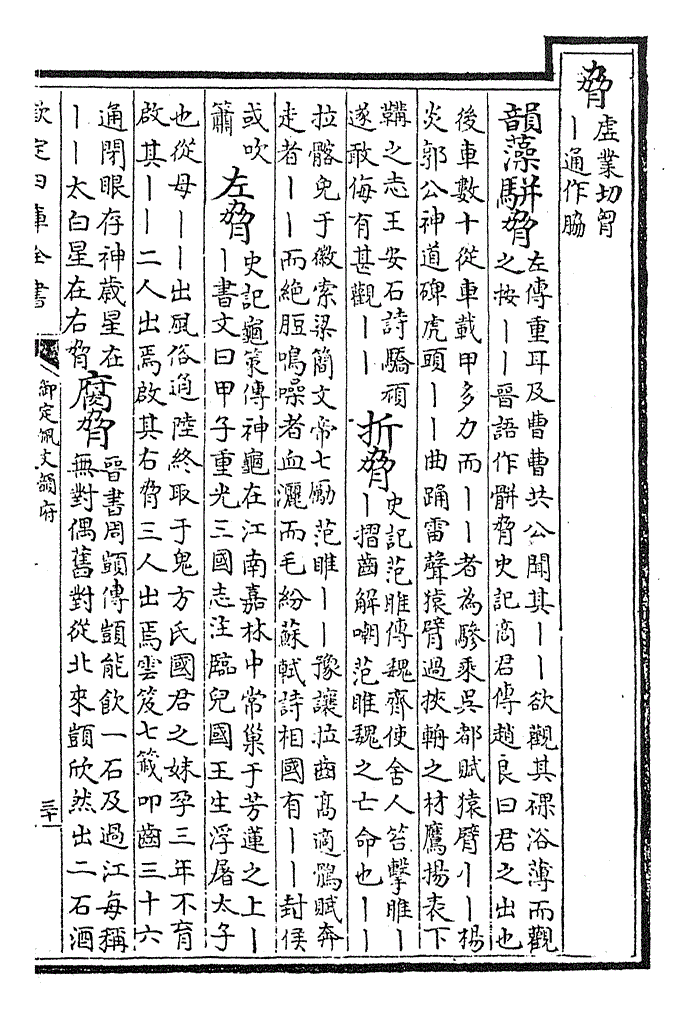 脅
虚業切胷
丨通作脇
韻藻駢脅
左傳重耳及曹曹共公聞其丨丨欲觀其裸浴薄而觀
之按丨丨晉語作骿脅史記商君傳趙良曰君之出也
後車數十從車載甲多力而丨丨者為驂乗吳都賦猿臂丨丨楊
炎郭公神道碑虎頭丨丨曲踊雷聲猿臂過挾輈之材鷹揚表下
鞲之志王安石詩驕頑
遂敢侮有甚觀丨丨
折脅
史記范雎傳魏齊使舍人笞擊雎丨
丨摺齒解嘲范雎魏之亡命也丨丨
拉髂免于徽索梁簡文帝七勵范雎丨丨豫讓拉齒高適鶻賦奔
走者丨丨而絶脰鳴噪者血灑而毛紛蘇軾詩相國有丨丨封侯
或吹
簫
左脅
史記龜策傳神龜在江南嘉林中常巢于芳蓮之上丨
丨書文曰甲子重光三國志注臨兒國王生浮屠太子
也從母丨丨出風俗通陸終取于鬼方氏國君之妹孕三年不育
啟其丨丨二人出焉啟其右脅三人出焉雲笈七籖叩齒三十六
通閉眼存神歳星在
丨丨太白星在右脅
腐脅
晉書周顗傳顗能飲一石及過江每稱
無對偶舊對從北來顗欣然出二石酒
欽定四庫全書
御定佩文韻府
三十